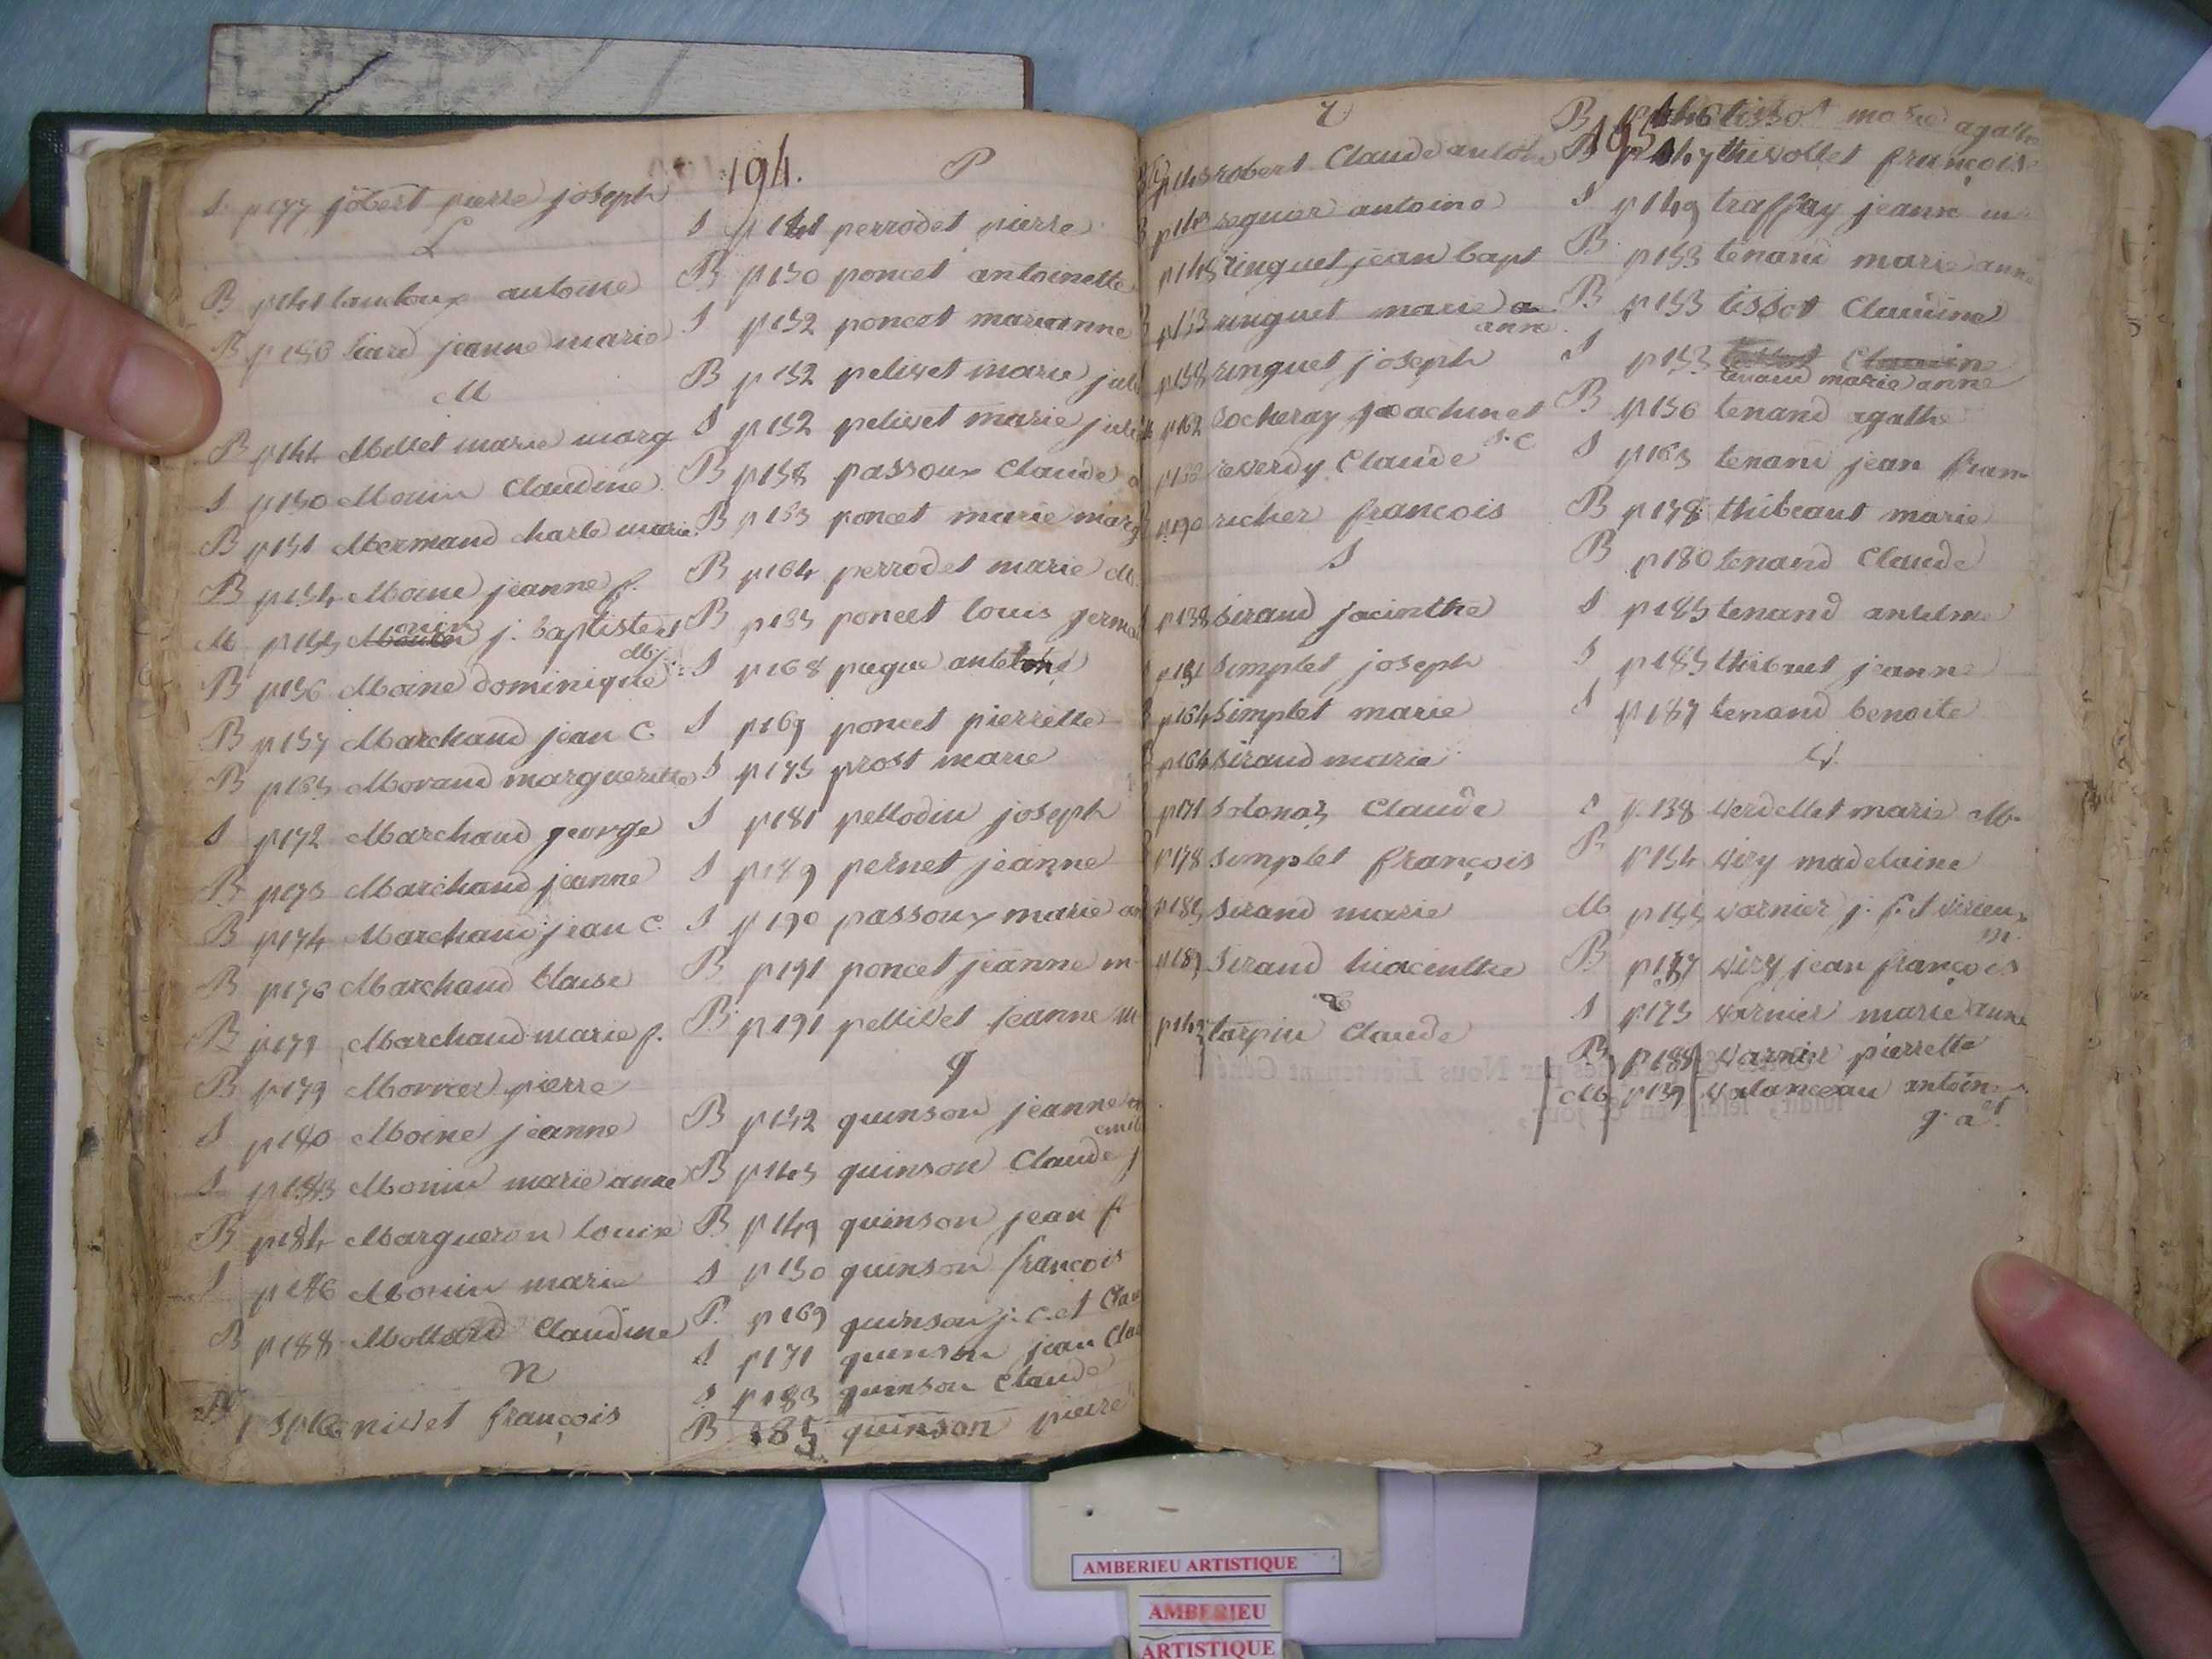 194.
S p177 jobert pierre joseph
L
B p141 lautoux antoine
B p186 liard jeanne marie
M
B p144 Millet marie marg
S p150 Monin Claudine
B p151 Mermand charle marie
B p154 Moine jeanne f.
M p155 Monin j. baptiste et
M/.
B p156 Moine dominique
B p157 Marchand jean C.
B p165 Morand marguerite
S p172 Marchand george
B p173 Marchand jeanne
B p174 Marchand jean C.
B p176 Marchand blaise
B Marchand marie f.
B p179 pierre
S p180 Moine jeanne
S p183 Monin marie anne
B p184 Margueron louise
S Monin marie
B p188 Mollard Claudine
N
nivet françois
P
S p141 perrodet pierre
B p150 poncet antoinette
S p152 poncet marianne
B p152 pelivet marie jul
S p152 pelivet marie juli
B p158 passoux Claude
B p163 poncet marie marg
B p164 perrodet marie M.
B poncet louis germa
S p168
S p169 poncet pierrette
S p175 prost marie
S p181 pellodin joseph
S p189 pernet jeanne
S p190 passoux marie an
B p191 poncet jeanne m
B p191 pellivet jeanne m
q
B p142 quinson jeanne
B p145 quinson Claude j
B p149 quinson jean f
S p150 quinson françois
p169 quinson j. c. et Clau
S p171 quinson jean Clau
S p183 quinson Claude
B 185 quinson pierre
195
robert Claude antoin
seguier antoine
p145 ringuet jean bapt
ringuet marie
anne
p158 ringuet joseph
p162 rocheray joachim et
S. C
reverdy Claude
p190 richer francois
S
p138 siraud jacinthe
p151 simplet joseph
p164 simplet marie
p164 siraud marie
p171 Claude
p178 simplet françois
p185 siraud marie
p189 siraud hiacinthe
t
tarpin Claude
B tissot marie agathe
B thivollet françoise
S p149 traffay jeanne m
B p153 tenand marie anne
B p153 tissot Claudine
S p153 tissot Claudine
tenand marie anne
B p156 tenand agathe
S p165 tenand jean fran
B p178 thibeaut marie
B p180 tenand Claude
S p185 tenand antelme
S p185 thibaut jeanne
S p187 tenand benoite
V
S p.138 verdellet marie M.
B p154 viry madelaine
M p155 varnier j. f. S virieu
m.
B viry jean françois
S p175 varnier marie anne
B p188 varnier pierrette
M p139 valanceau antoin
g. a et
AMBERIEU ARTISTIQUE
AMBERIEU
ARTISTIQUE